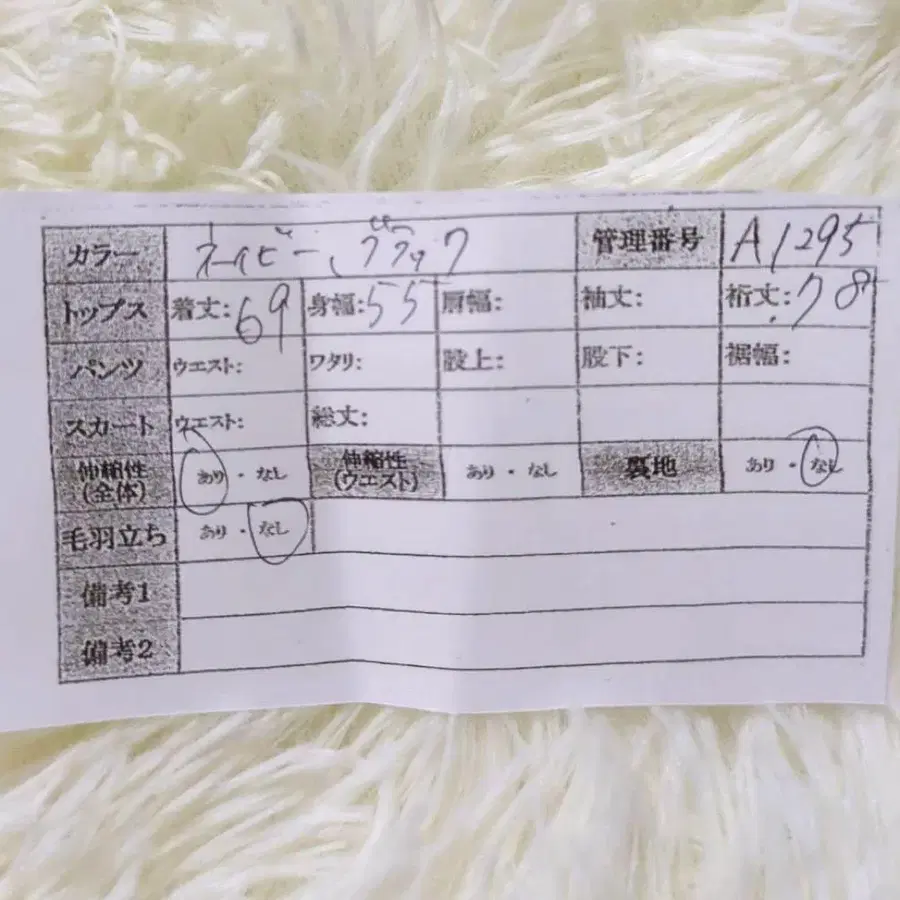 カラー ネイビー、ブラック 管理番号 A1295
トップス 着丈:69 身幅:55 肩幅: 袖丈: 裄丈:78
パンツ ウエスト: ワタリ: 股上: 股下: 裾幅:
スカート ウエスト: 総丈:
伸縮性(全体) あり・なし 伸縮性(ウエスト) あり・なし 裏地 あり・なし
毛羽立ち あり・なし
備考1
備考2